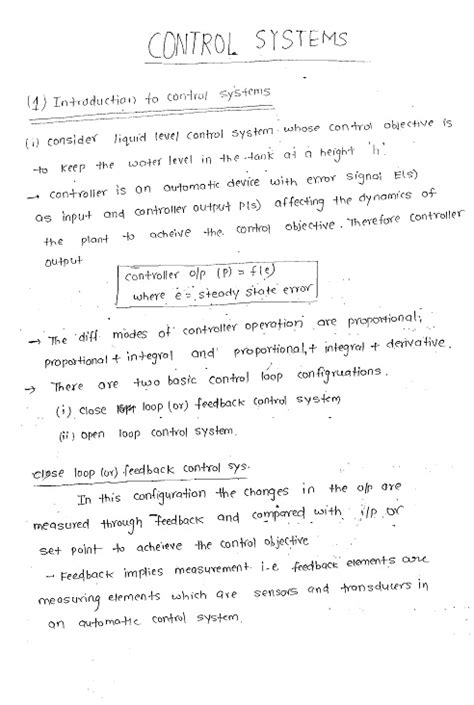 CONTROL SYSTEMS
(1) Introduction to control systems
(i) consider liquid level control system whose control objective is
to keep the water level in the tank at a height 'h'.
→ controller is an automatic device with error signal E(s)
as input and controller output P(s) affecting the dynamics of
the plant to acheive the control objective. Therefore controller
output
controller o/p (P) = f(e)
where e = steady state error
→ The diff modes of controller operation are proportional;
proportional + integral and proportional, + integral + derivative.
→ There are two basic control loop configruations.
(i) close loop (or) feedback control system
(ii) open loop control system.
close loop (or) feedback control sys.
In this configuration the changes in the o/p are
measured through feedback and compared with i/p or
set point to acheieve the control objective
- Feedback implies measurement i.e feedback elements are
measuring elements which are sensors and transducers in
an automatic control system.